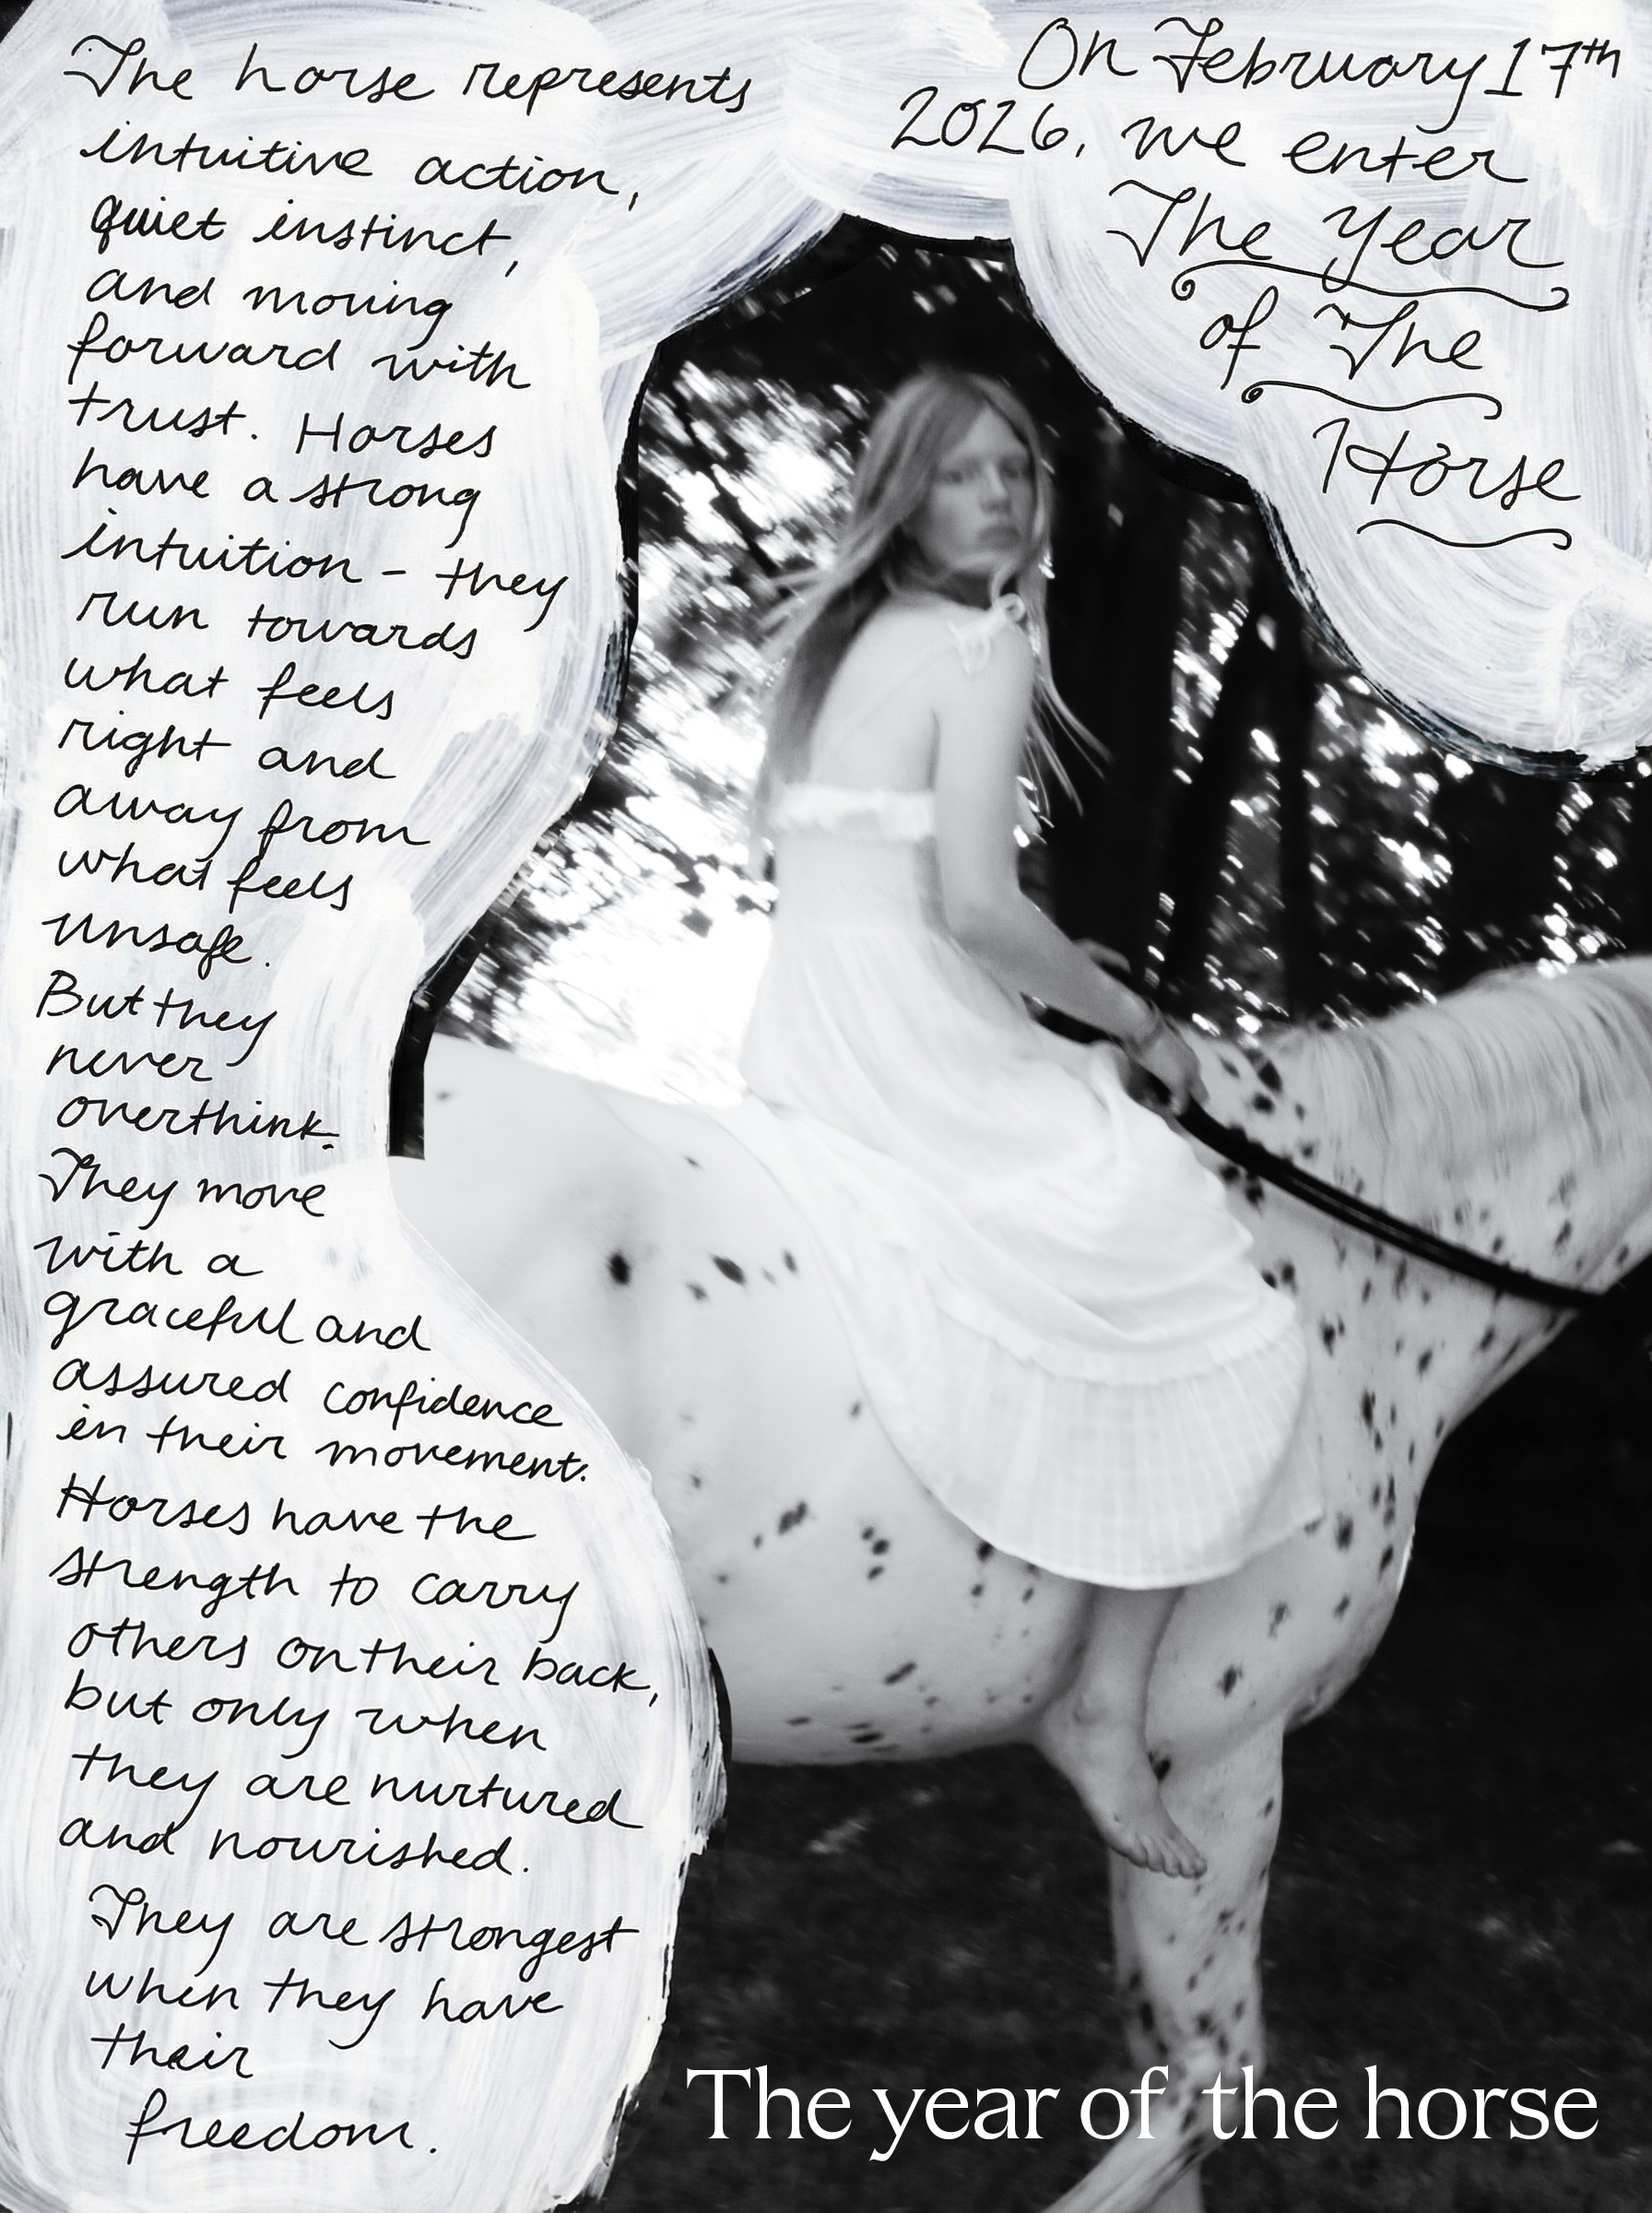 The horse represents
intuitive action,
quiet instinct,
and moving
forward with
trust. Horses
have a strong
intuition - they
run towards
what feels
right and
away from
what feels
unsafe.
But they
never
overthink.
They move
with a
graceful and
assured confidence
in their movement.
Horses have the
strength to carry
others on their back,
but only when
they are nurtured
and nourished.
They are strongest
when they have
their
freedom.
On February 17th
2026, we enter
The Year
of The
Horse
The year of the horse